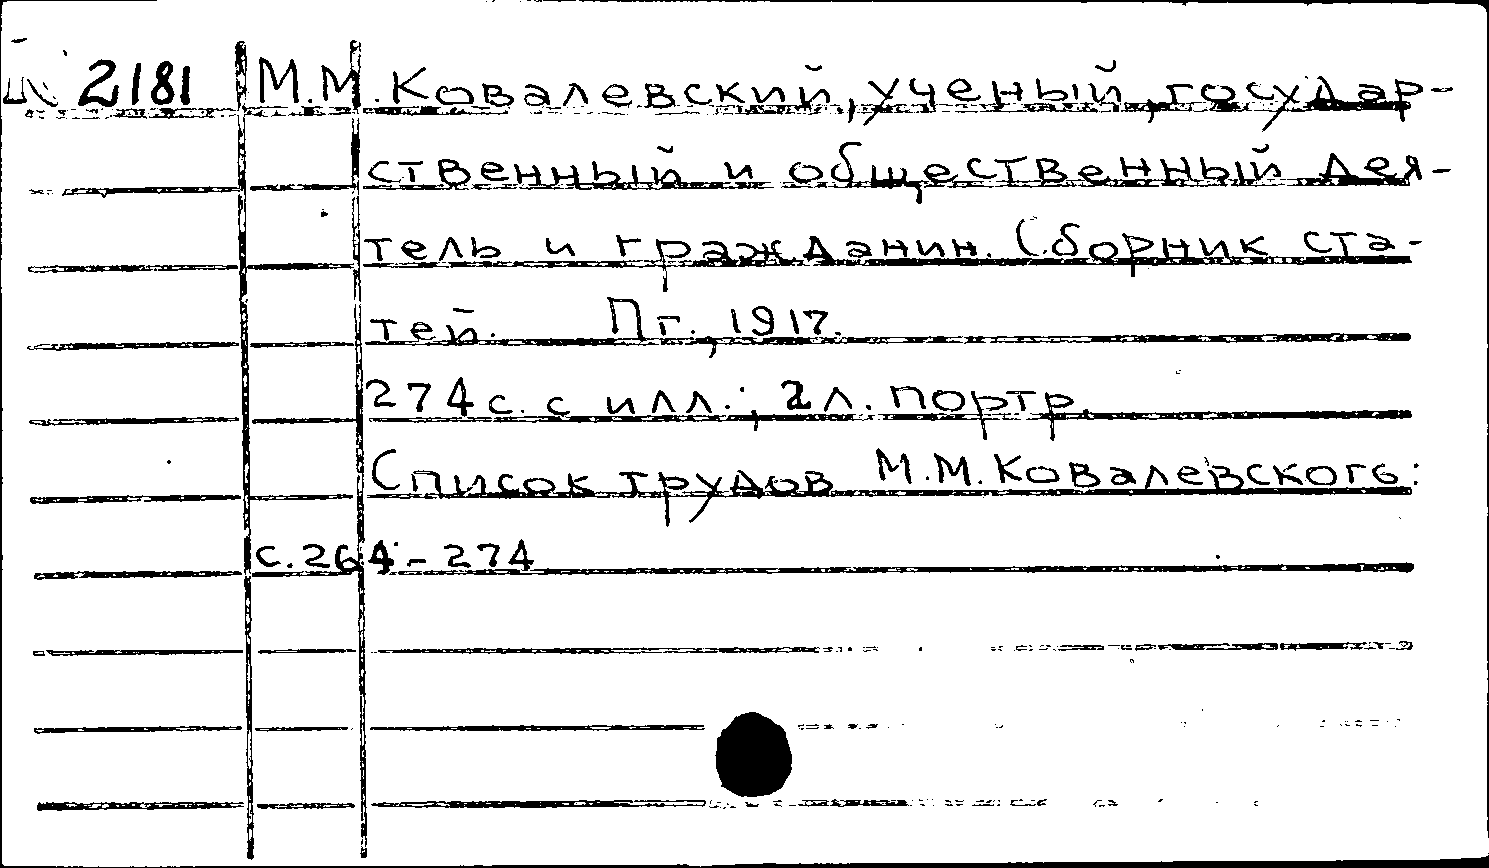 2181 М.М. Ковалевский, ученый, государ-
ственный и общественный дея-
тель и гражданин. Сборник ста-
тей. Пг., 1917.
274 с. с илл.; 2 л. портр.
Список трудов М.М. Ковалевского:
с. 264-274